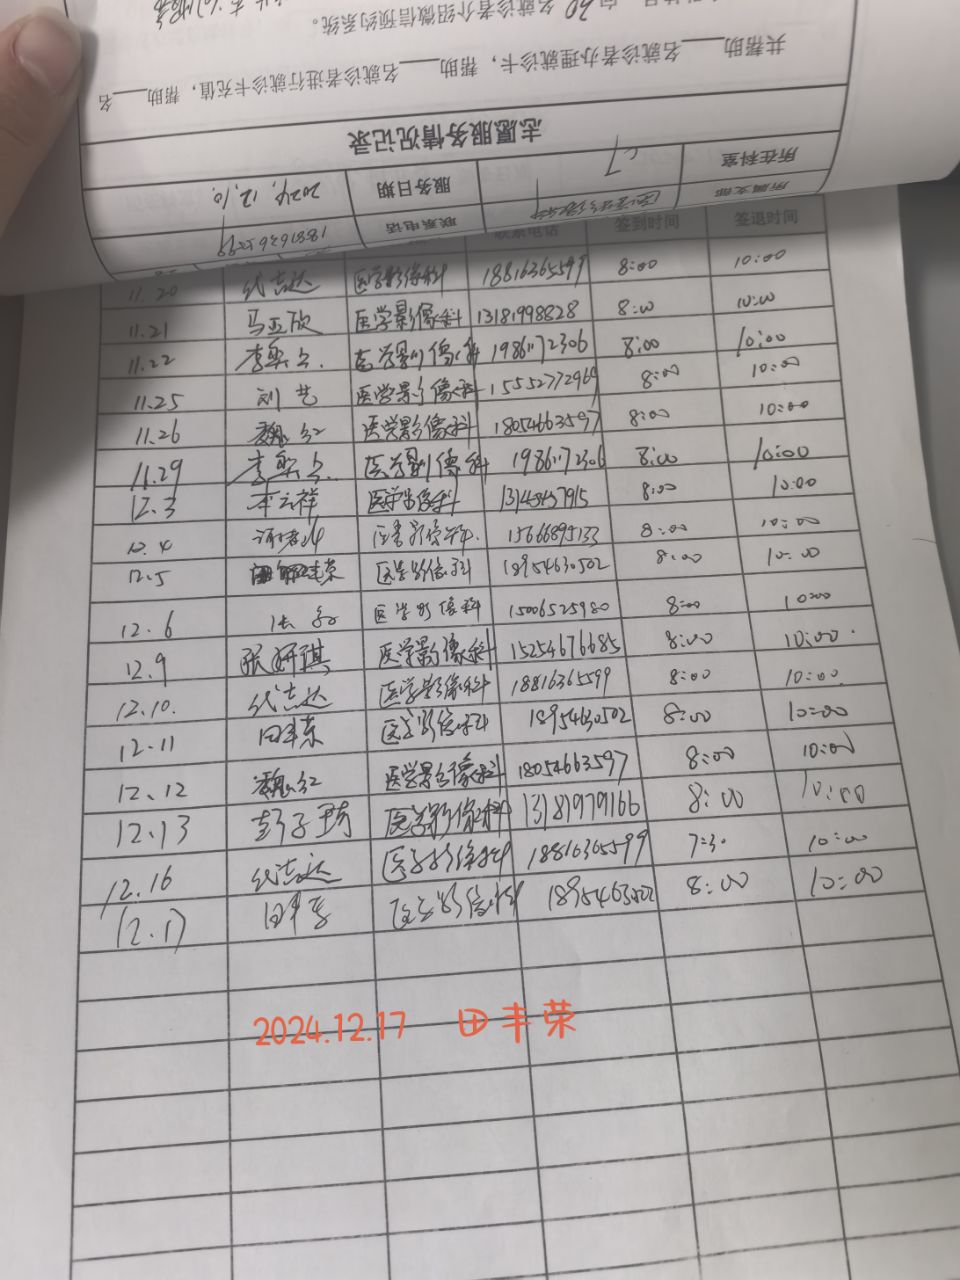 名就诊者介绍微信预约系统。
共帮助 名就诊者办理就诊卡，帮助 名就诊者进行就诊卡充值，帮助 名
志愿服务情况记录
所在科室 CT 服务日期 2024.12.10.
所属支部 联系电话
联系电话 签到时间 签退时间
11.20 代志达 医学影像科 18816365599 8:00 10:00
11.21 马亚欣 医学影像科 13181998828 8:00 10:00
11.22 医学影像科 19861172306 8:00 10:00
11.25 刘艺 医学影像科 15552772969 8:00 10:00
11.26 魏红 医学影像科 18054663597 8:00 10:00
11.29 医学影像科 19861172306 8:00 10:00
12.3 李云祥 医学影像科 8:00 10:00
12.4 医学影像科 15666895133 8:00 10:00
12.5 田丰荣 医学影像科 18954630502 8:00 10:00
12.6 医学影像科 15006525980 8:00 10:00
12.9 张妍琪 医学影像科 15254676685 8:00 10:00.
12.10. 代志达 医学影像科 18816365599 8:00 10:00.
12.11 田丰荣 医学影像科 18954630502 8:00 10:00
12.12 魏红 医学影像科 18054663597 8:00 10:00
12.13 彭子琦 医学影像科 13181979166 8:00 10:00
12.16 代志达 医学影像科 18816365599 7:30 10:00
12.17 田丰荣 医学影像科 18954630502 8:00 10:00
2024.12.17 田丰荣